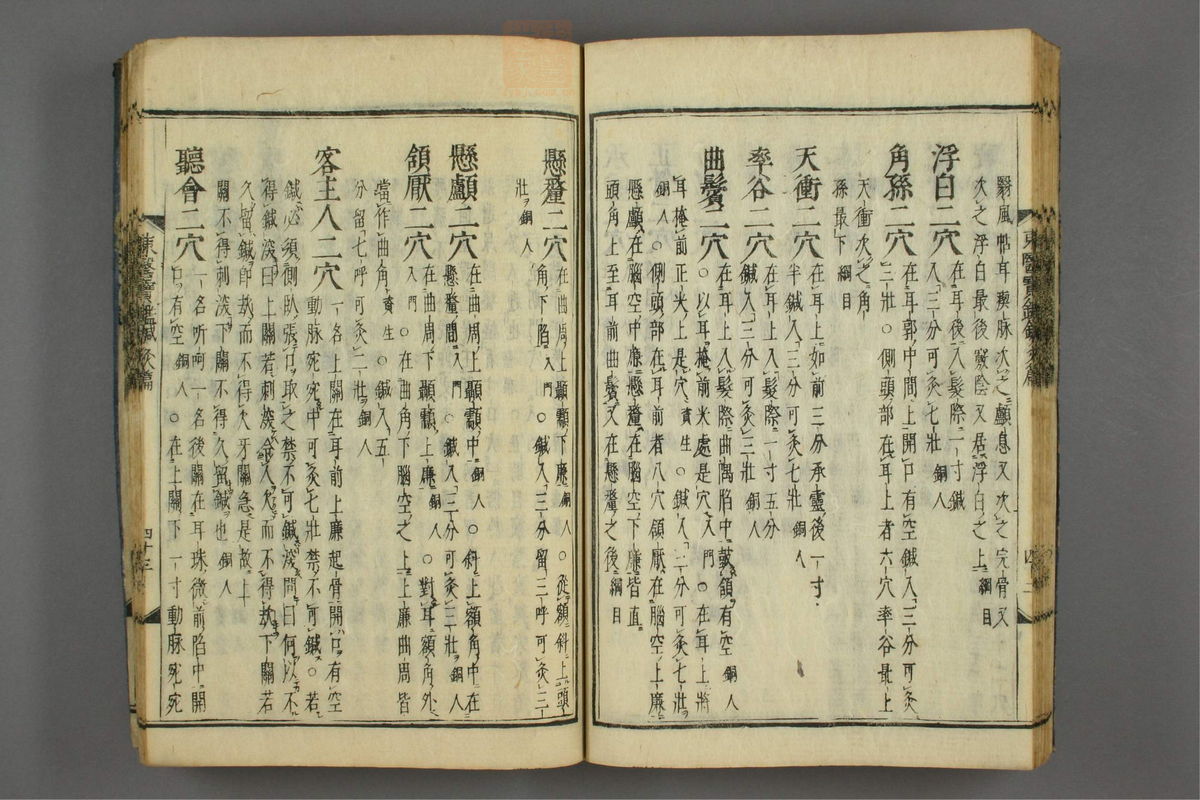 翳風帖耳㽽脉次之顱息又次之完骨又
次之浮白最後竅陰又居浮白之上綱目
浮白二穴在耳後入髮際一寸鍼
入三分可灸七壯銅人
角孫二穴在耳郭中間上開口有空鍼入三分可灸
三壯○側頭部在耳上者六穴率谷最上
天衝次之角
孫最下綱目
天衝二穴在耳上如前三分承靈後一寸
半鍼入三分可灸七壯銅人
率谷二穴在耳上入髮際一寸五分
鍼入三分可灸三壯銅人
曲鬢二穴在耳上入髮際曲隅陷中鼓頷有空銅人
○以耳掩前尖處是穴入門○在耳上將
耳掩前正尖上是穴資生○鍼入二分可灸七壯
銅人○側頭部在耳前者八穴頷厭在腦空上廉
懸顱在腦空中廉懸釐在腦空下廉皆直
頭角上至耳前曲鬢又在懸釐之後綱目
懸釐二穴在曲周上顳顬下廉銅人○從額斜上頭
角下陷入門○鍼入三分留三呼可灸三
壯銅人
懸顱二穴在曲周上顳顬中銅人○斜上額角中在
懸釐間入門○鍼入三分可灸三壯銅人
頷厭二穴在曲周下顳顬上廉銅人○對耳額角外
入門○在曲角下腦空之上上廉曲周皆
當作曲角資生○鍼入五
分留七呼可灸二壯銅人
客主人二穴一名上關在耳前上廉起骨開口有空
動脉宛宛中可灸七壯禁不可鍼○若
鍼必須側臥張口取之禁不可鍼深問曰何以不
得鍼深曰上關若刺深令人欠而不得㰦下關若
久留鍼卽㰦而不得欠牙關急是故上
關不得刺深下關不得久留鍼也銅人
聽會二穴一名听呵一名後關在耳珠微前陷中開
口有空銅人○在上關下一寸動脉宛宛
東醫寶鑑鍼灸篇
四十三